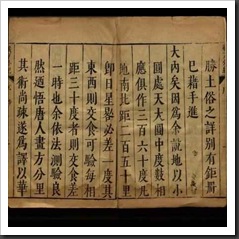 勝土俗之詳別有鉅冊
已藉手進
大內矣因爲余說地以小
圓處天大圜中度數相
應俱作三百六十度凡
地南北距二百五十里
卽日星晷必差一度其
東西則交食可驗每相
距三十度者則交食差
一時也余依法測驗良
然迺悟唐人畫方分里
其術尚疎遂爲譯以華